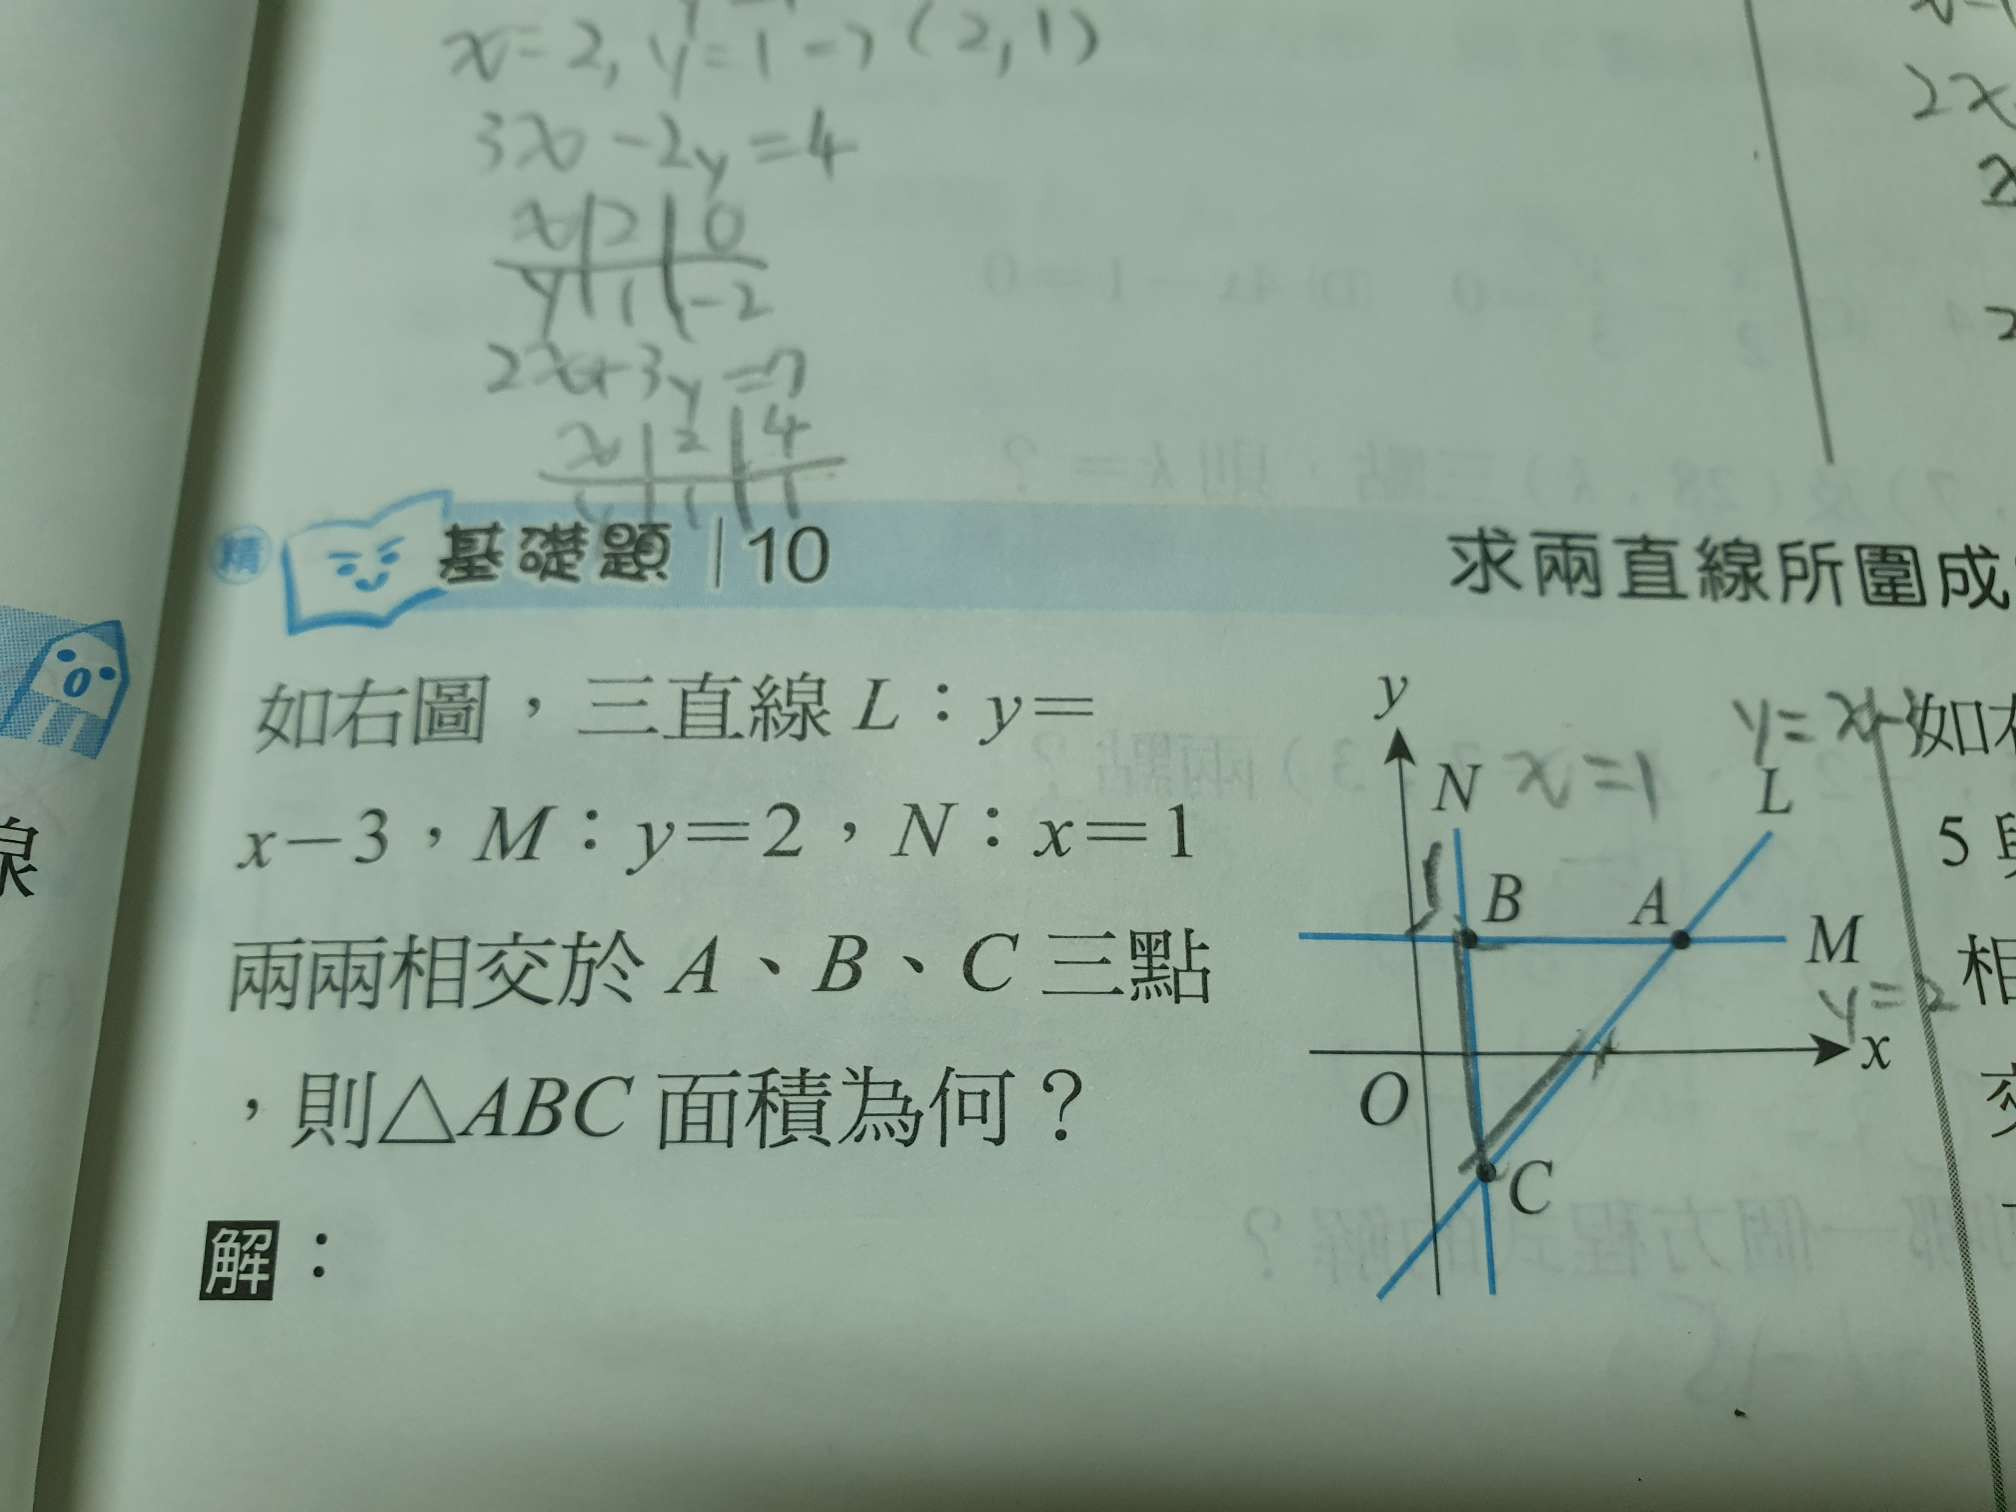 x=2, y=1 → (2,1)
3x-2y=4
x 2 0
y 1 -2
2x+3y=7
x 2 4
1 1
精 基礎題 10
求兩直線所圍成
如右圖，三直線 L：y＝
x－3，M：y＝2，N：x＝1
兩兩相交於 A、B、C 三點
，則△ABC 面積為何？
解：
y
N x=1
L
B A
M
y=2
x
O
C
線
5
相
交
2x